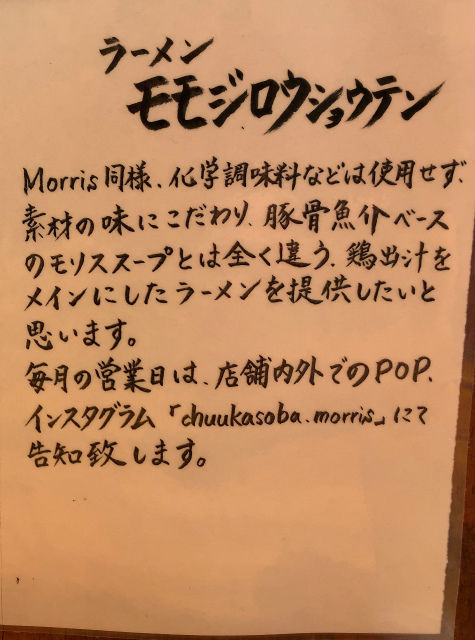 ラーメン
モモジロウショウテン
Morris同様、化学調味料などは使用せず、
素材の味にこだわり、豚骨魚介ベース
のモリススープとは全く違う、鶏出汁を
メインにしたラーメンを提供したいと
思います。
毎月の営業日は、店舗内外でのPOP、
インスタグラム「chuukasoba.morris」にて
告知致します。